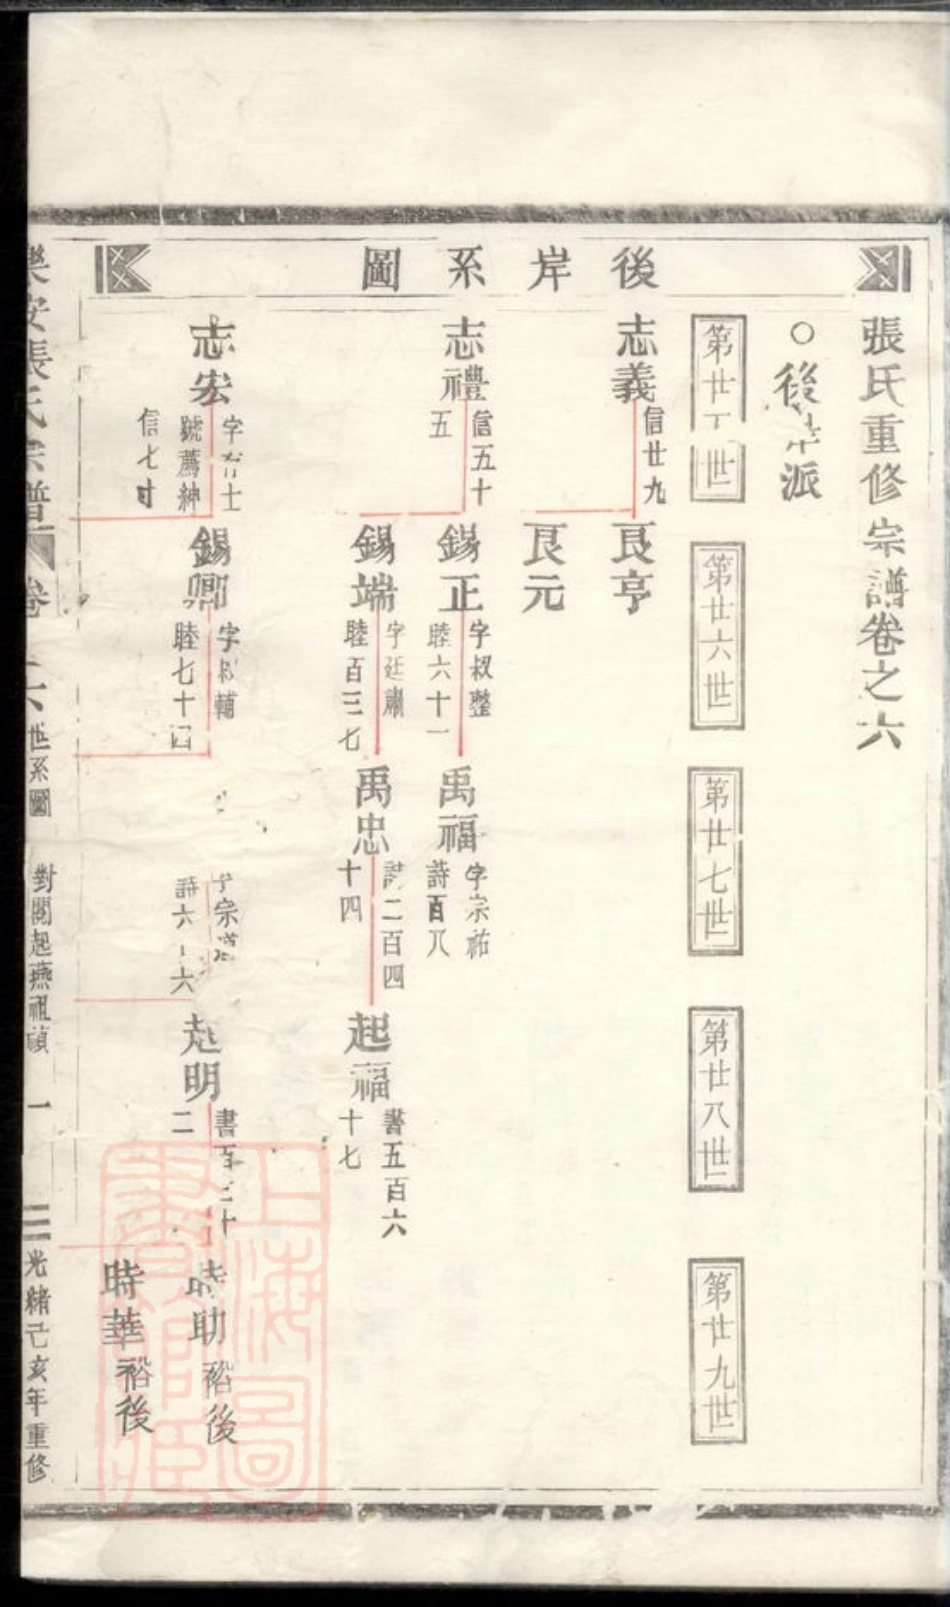 張氏重修宗譜卷之六
後岸系圖
○後岸派
第廿五世
第廿六世
第廿七世
第廿八世
第廿九世
志義
信廿九
良亨
良元
志禮
信五十
五
錫正
字叔整
睦六十一
禹福
字宗祐
詩百八
錫端
字廷肅
睦百三七
禹忠
詩二百四
十四
起福
書五百六
十七
志宏
號薦紳
信七
錫卿
字叔輔
睦七十四
字宗
詩六
六
起明
書百二十
二
時助
裕後
時華
裕後
樂安張氏宗譜
卷
六
世系圖
對閱起燕祖禎
一
光緒己亥年重修
上海圖書館藏